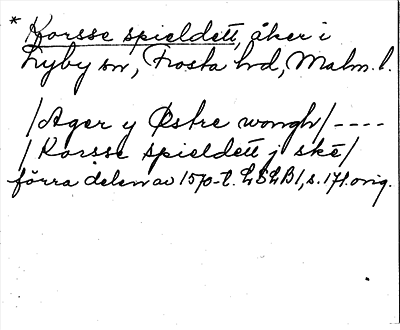 * Korsse spieldett, åker i
Lyby sn, Frosta hd, Malm. l.
/Ager y Østre wongh/ ----
/Korsse spieldett j skē/
förra delen av 1570-t. LSLB1, s. 171. orig.